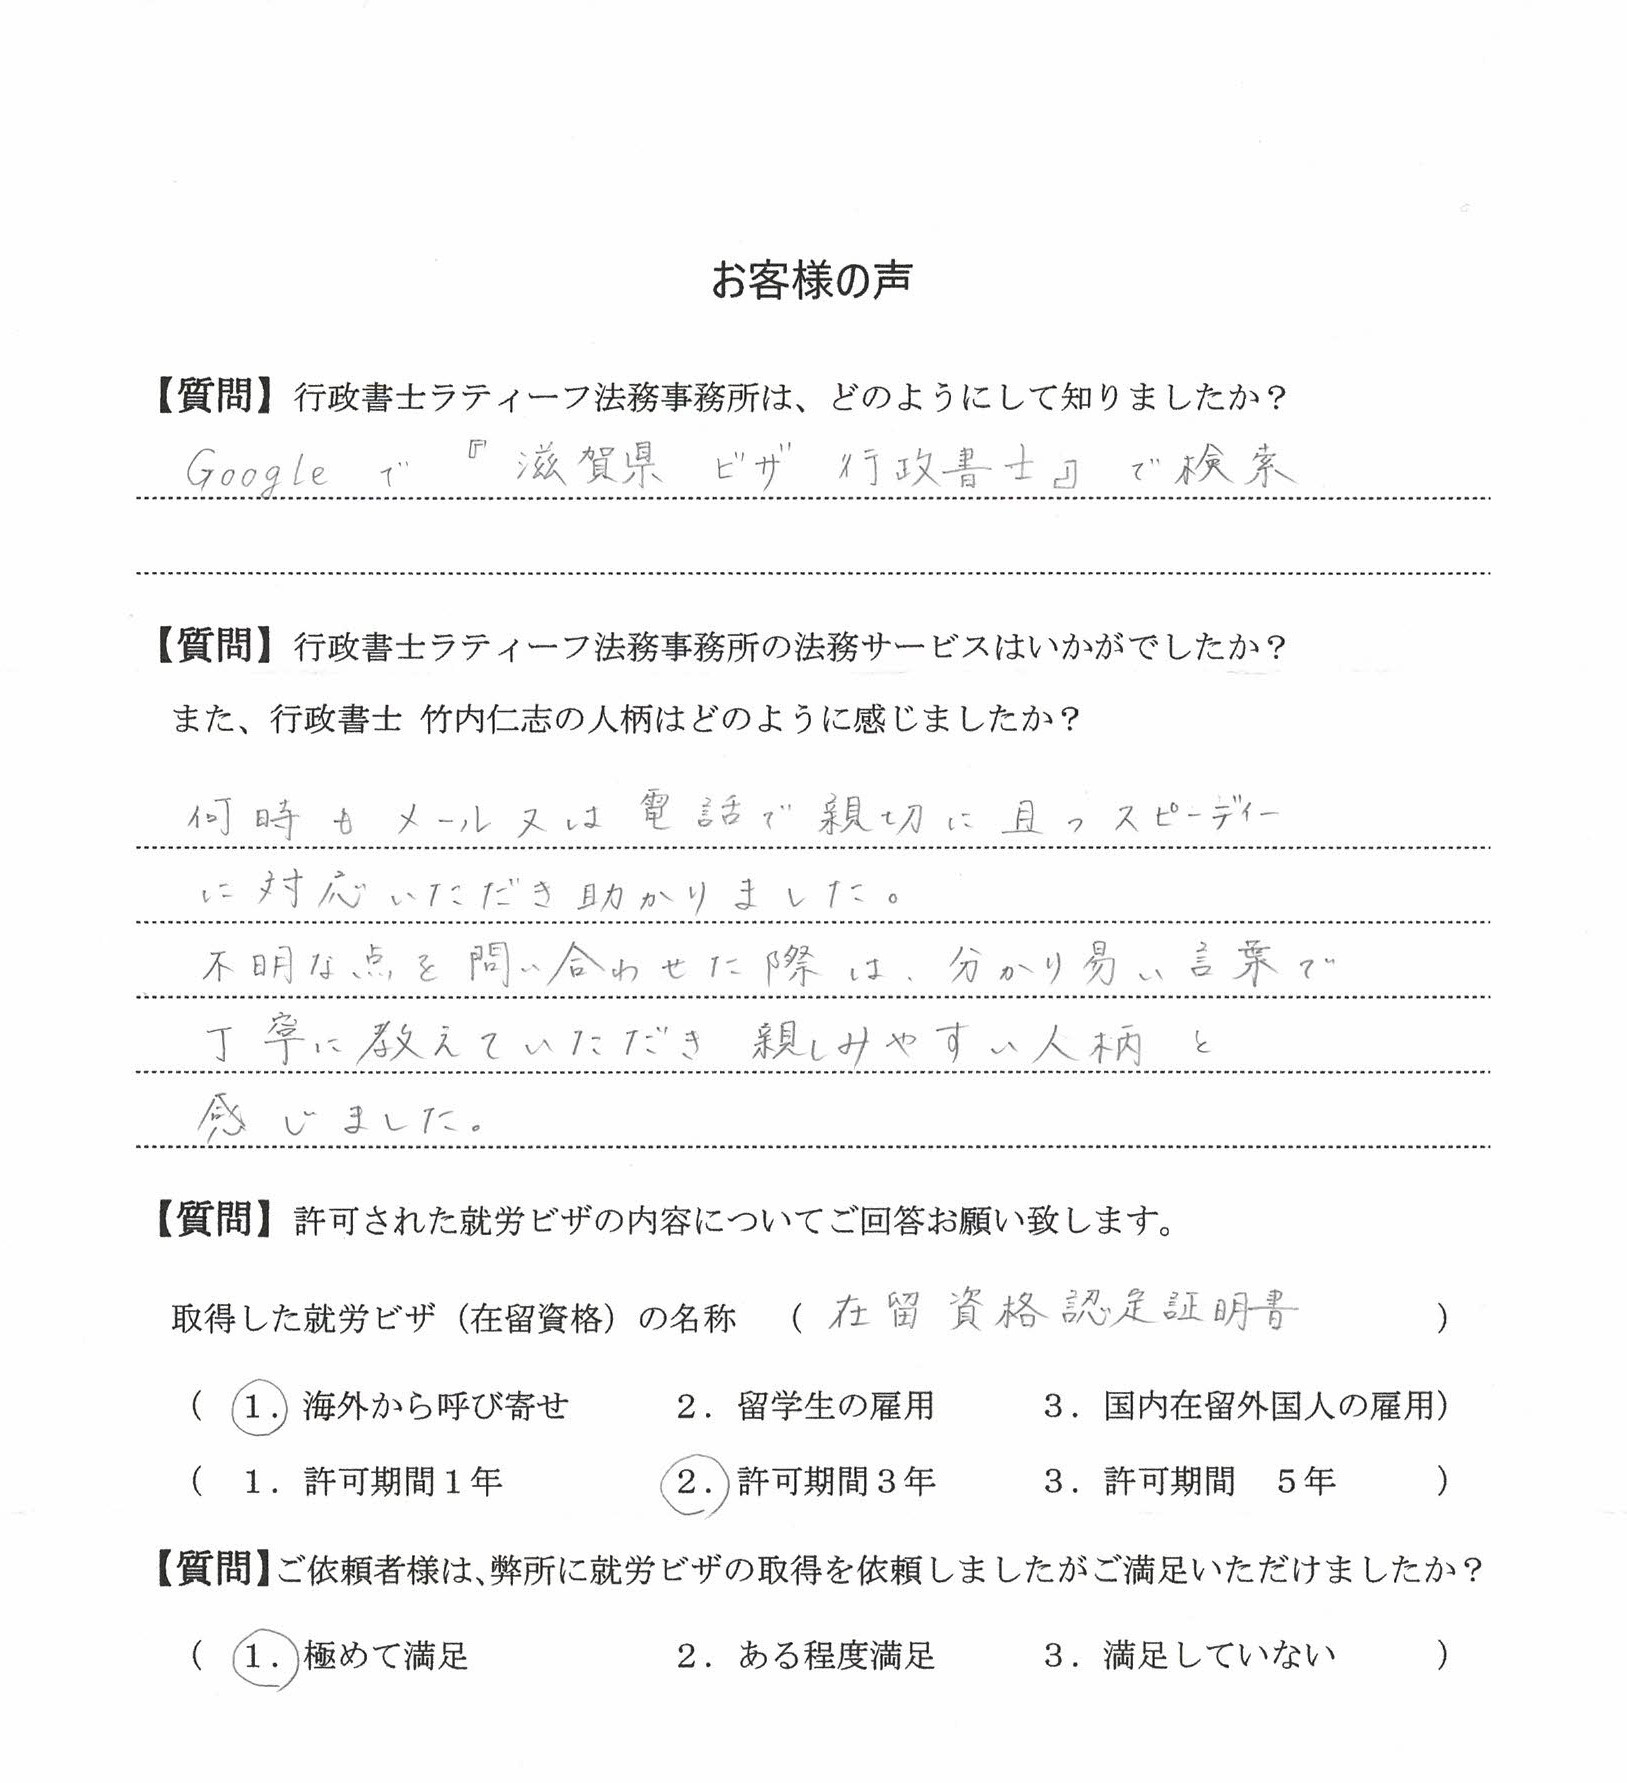 お客様の声
【質問】行政書士ラティーフ法務事務所は、どのようにして知りましたか？
Google で 『滋賀県 ビザ 行政書士』で検索
【質問】行政書士ラティーフ法務事務所の法務サービスはいかがでしたか？
また、行政書士 竹内仁志の人柄はどのように感じましたか？
何時もメール又は電話で親切に且つスピーディー
に対応いただき助かりました。
不明な点を問い合わせた際は、分かり易い言葉で
丁寧に教えていただき 親しみやすい人柄と
感じました。
【質問】許可された就労ビザの内容についてご回答お願い致します。
取得した就労ビザ（在留資格）の名称 （ 在留資格認定証明書 ）
（ 1．海外から呼び寄せ 2．留学生の雇用 3．国内在留外国人の雇用）
（ 1．許可期間1年 2．許可期間3年 3．許可期間 5年 ）
【質問】ご依頼者様は、弊所に就労ビザの取得を依頼しましたがご満足いただけましたか？
（ 1．極めて満足 2．ある程度満足 3．満足していない ）